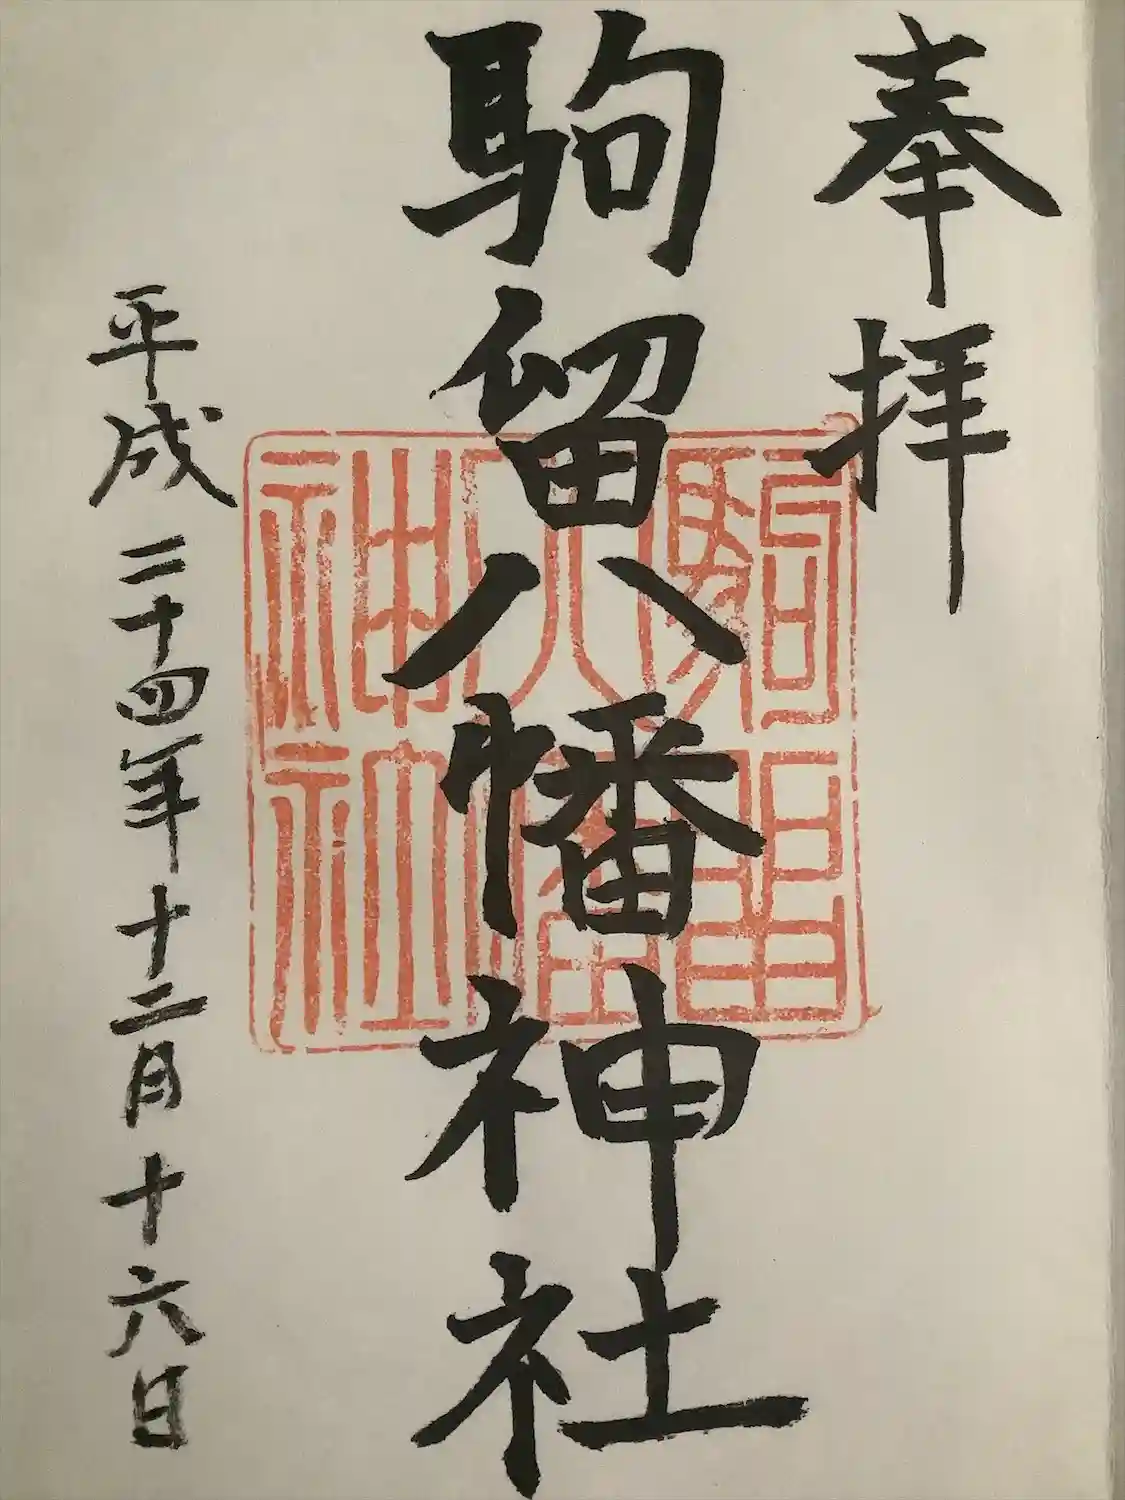 奉拝
駒留八幡神社
駒留八幡神社
平成二十四年十二月十六日